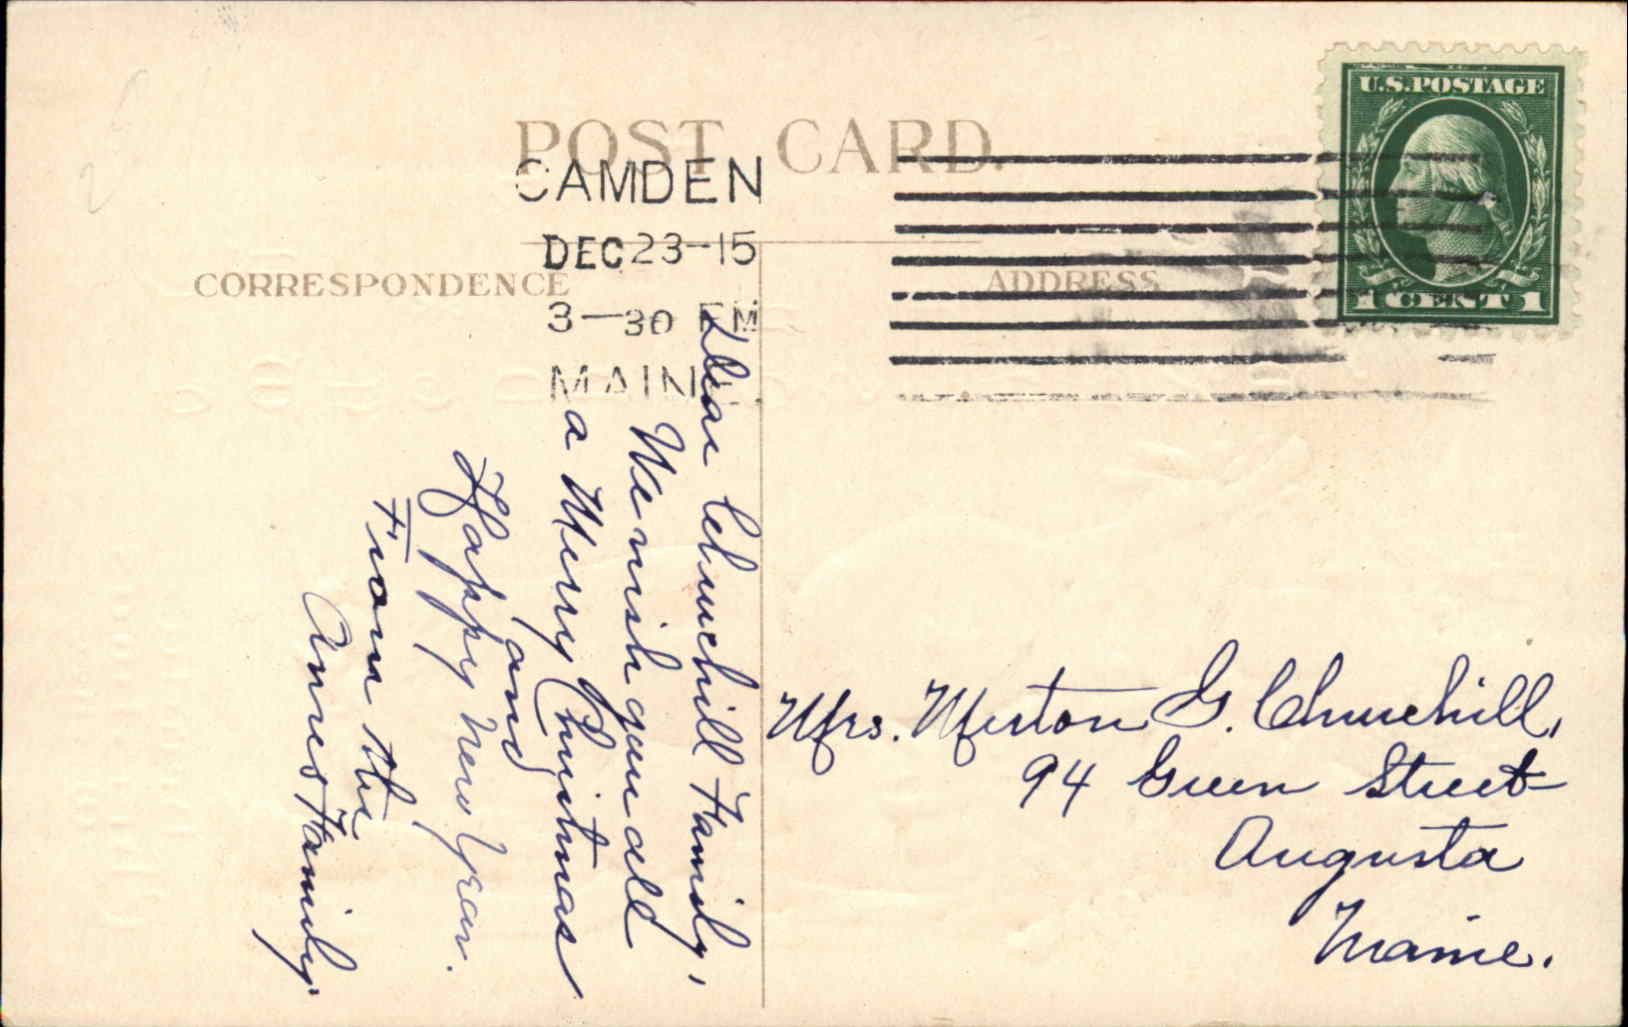 POST CARD.
CAMDEN
DEC 23-15
3-30 PM
MAINE.
U.S. POSTAGE
1 CENT 1
CORRESPONDENCE
ADDRESS
Dear Churchill Family,
We wish you all
a Merry Christmas
and
Happy New Year.
From the
Ames Family.
Mrs. Merton G. Churchill,
94 Green Street
Augusta
Maine.